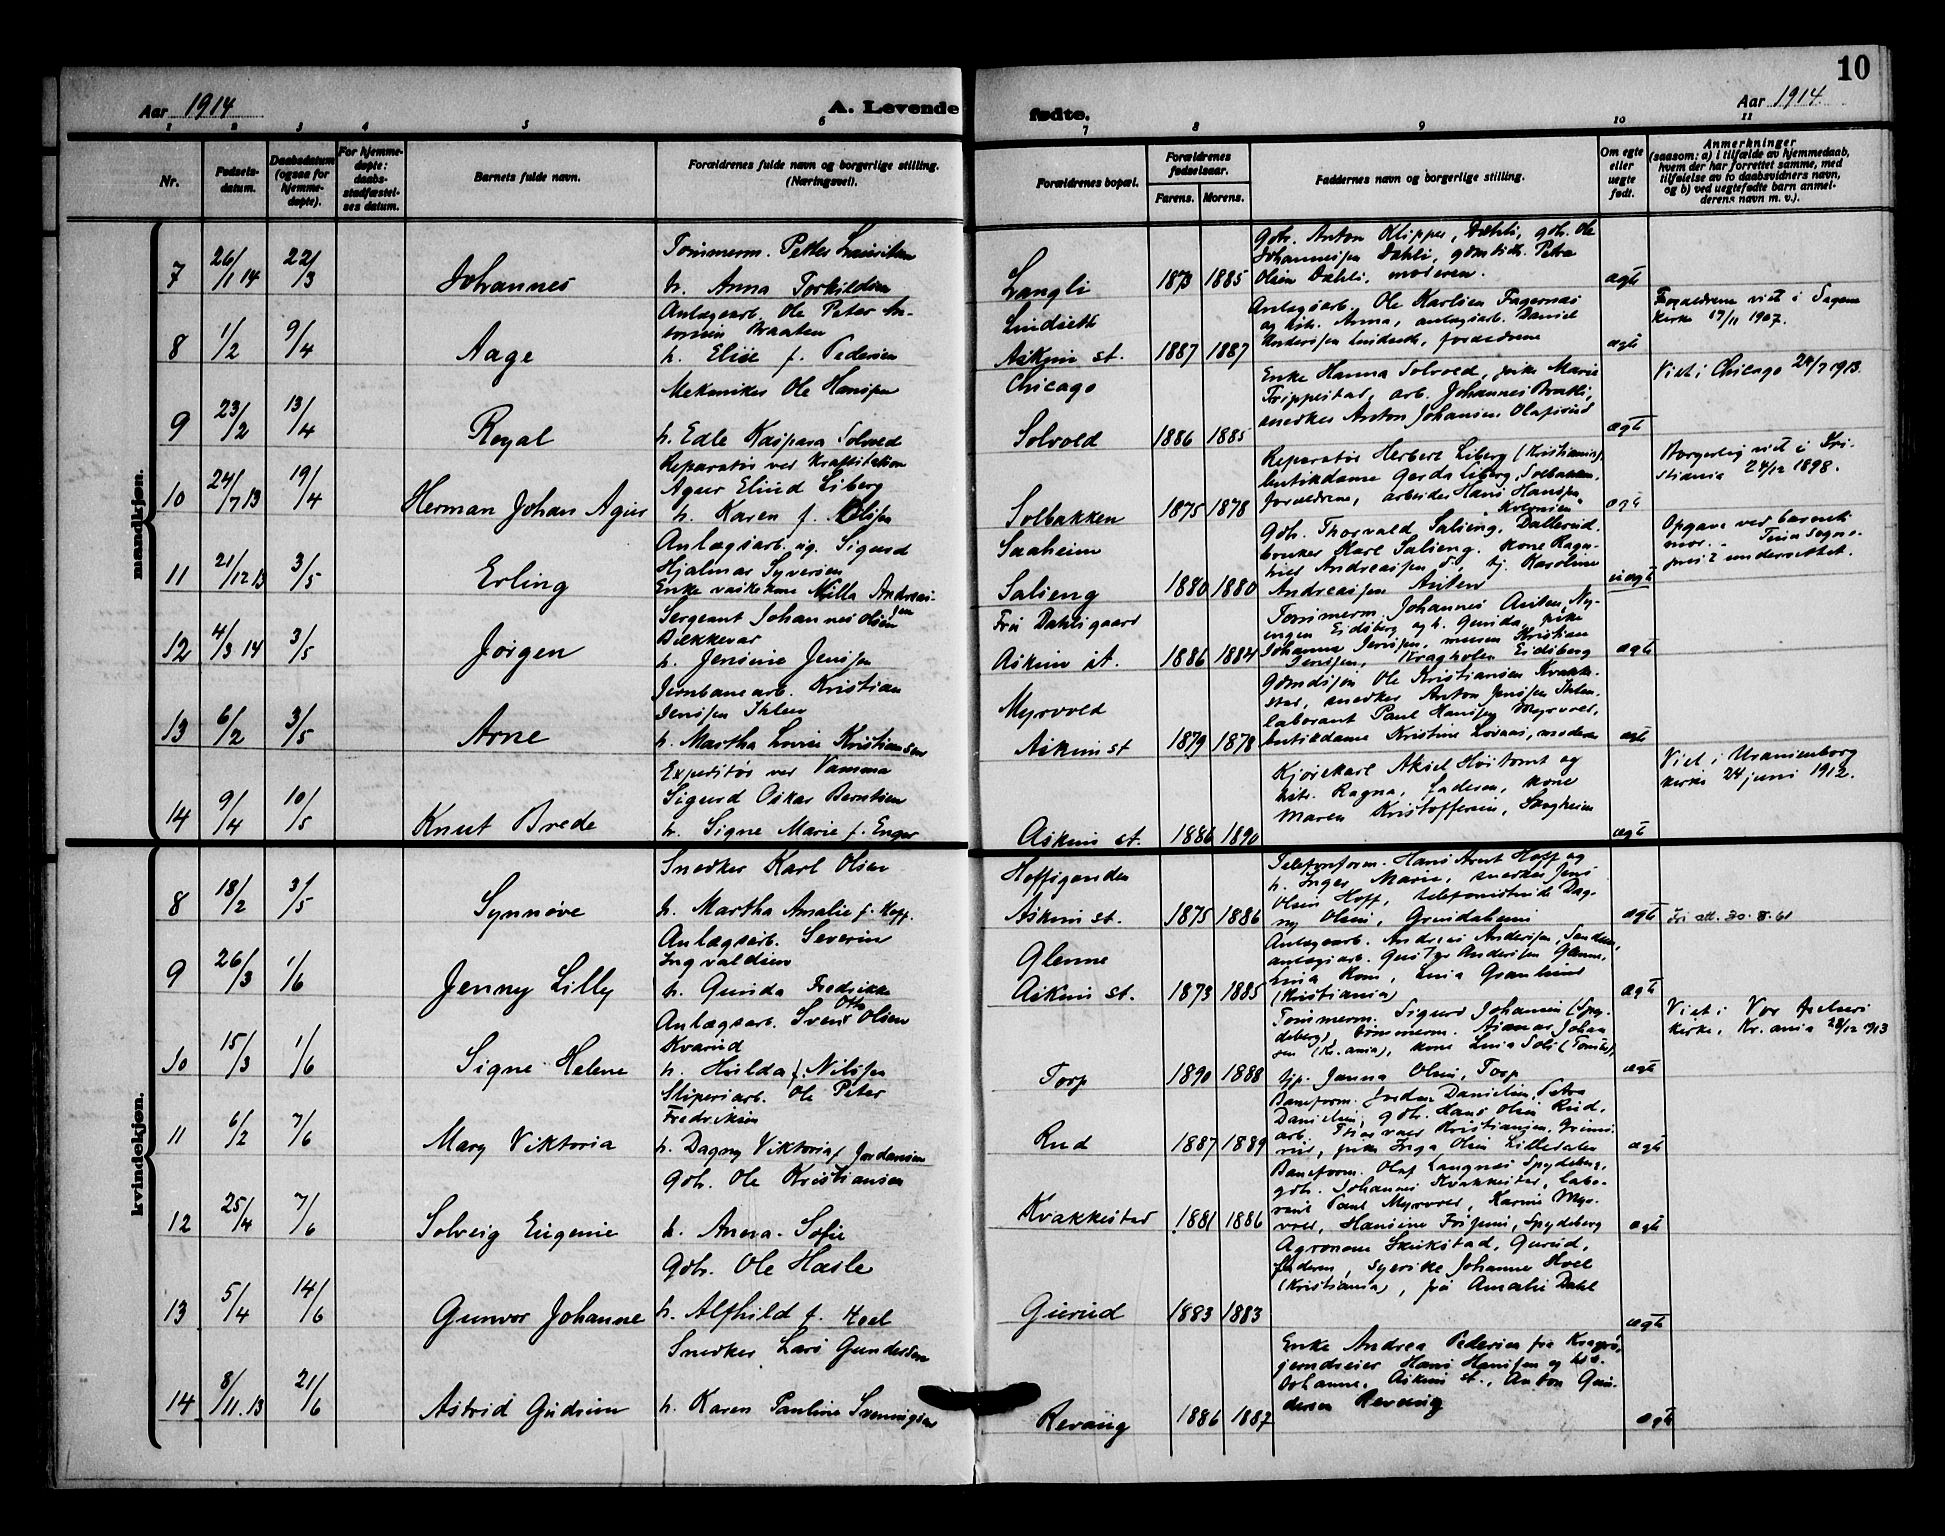 10
Aar 1914 A. Levende fødte. Aar 1914
1 2 3 4 5 6 7 8 9 10 11
Nr.
Fødsels-
datum.
Daabsdatum
(ogsaa for
hjemme-
døpte).
For hjemme-
døpte:
daabs-
stadfæstel-
ses datum.
Barnets fulde navn.
Forældrenes fulde navn og borgerlige stilling.
(Næringsvei).
Forældrenes bopæl.
Forældrenes
fødselsaar.
Farens. Morens.
Faddernes navn og borgerlige stilling.
Om egte
eller
uegte
født.
Anmerkninger
(saasom: a) i tilfælde av hjemmedaab,
hvem der har forrettet samme, med
tilføielse av to daabsvidners navn,
og b) ved uegtefødte barn anmel-
derens navn m. v.).
mandkjøn.
7 26/1 14 22/3 Johannes
Tømmerm. Petter Lauritsen
h. Anna Torkildsen
Langli 1873 1885
Gdbr. Anton Klipper, Dæhli, gdbr. Ole
Johannessen Dæhli, gdmdtk. Petra
Olsen Dæhli, moderen.
ægte
8 1/2 9/4 Aage
Anlægsarb. Ole Peter An-
tonsen Braaten
h. Elise f. Pedersen
Lindseth
Askim st. 1887 1887
Anlægsarb. Ole Karlsen Fagernæs
og hstr. Anna, anlægsarb. Daniel
Andersen Lindseth, forældrene
ægte
Forældrene viet i Sagene
kirke 17/11 1907.
9 23/2 13/4 Royal
Mekaniker Ole Hansen
h. Edle Kaspara Solvold
Chicago
Solvold 1886 1885
Enke Hanna Solvold, pike Marie
Trippestad, arb. Johannes Bratli,
snedker Anton Johansen Olafsrud
ægte
Viet i Chicago 24/7 1913.
10 24/7 13 19/4 Herman Johan Agner
Reparatør ved Kraftstation
Agner Elind Liberg
h. Karen f. Olsen
Solbakken 1875 1878
Reparatør Herbert Liberg (Kristiania),
butikdame Gerda Liberg, Solbakken,
forældrene, arbeider Hans Hansen
ægte
Borgerlig viet i Kri-
stiania 24/12 1898.
11 21/12 13 3/5 Erling
Anlægsarb. ug. Sigurd
Hjalmar Syversen
Enke vaskekone Milla Andreas-
sen
Saaheim
Salieng 1880 1880
Gdbr. Thorvald Salieng, Dallerud,
bruker Karl Salieng, kone Ragn-
hild Andreassen S., tj. Karoline
Andreassen
uægte
Opgave ved barnets
mor. Tinn Sogne-
prest underrettet.
12 4/3 14 3/5 Jørgen
Sergeant Johannes Olsen
Bækkevar
h. Jensine Jensen
Fru Dahlsgaard
Askim st. 1886 1884
Tømmerm. Johannes Auten, Ny-
engen Eidsberg og h. Gunda, pike
Johanna Jensen, murer Kristian
Jensen, Kragholen Eidsberg
ægte
13 6/2 3/5 Arne
Jernbanearb. Kristian
Jensen Ihlen
h. Martha Lovise Kristiansen
Myrvold
Askim st 1879 1878
Gdmdsøn Ole Kristiansen Kvakke-
stad, snedker Anton Jensen Ihlen,
laborant Paul Hansen Myrvold,
butikdame Kristine Lövnæs, moderen
ægte
14 9/4 10/5 Knut Brede
Expeditør ved Vamma
Sigurd Oskar Berntsen
h. Signe Marie f. Enger
Askim st. 1886 1890
Kjørekarl Aksel Høitomt og
hstr. Ragna, faderen, kone
Maren Kristoffersen, Skogheim
ægte
Viet i Uranienborg
kirke 24 juni 1912.
kvindekjøn.
8 18/2 3/5 Synnøve
Snedker Karl Olsen
h. Martha Amalie f. Hoff.
Hoffsgrenden
Askim st. 1875 1886
Telefonform. Hans Arnt Hoff og
h. Inger Marie, snedker Jens
Olsen Hoff, telefonistinde Dag-
ny Olsen, Grindaheim
ægte
Fri att. 30.8.61
9 26/3 1/6 Jenny Lilly
Anlægsarb. Severin
Ingvaldsen
h. Gunda Fredrikke
Glenne
Askim st. 1873 1885
Anlægsarb. Andreas Andersen, Sanden,
anlægsarb. Gustav Andersen Glenne,
Lina kone, Lina Granlund
(Kristiania)
ægte
10 15/3 1/6 Signe Helene
Anlægsarb. Sven Otto Olsen
Kvarud
h. Hulda f. Nilssen
Torp 1890 1888
Tømmerm. Sigurd Johansen (Spy-
deberg), tømmerm. Ajanar Johan-
sen (Kr.ania), kone Lina Soli (Tomter),
tjp. Janna Olsen, Torp
ægte
Viet i Vor Frelsers
kirke, Kr.ania 28/12 1913
11 6/2 7/6 Mary Viktoria
Sliperiarb. Ole Peter
Fredriksen
h. Dagny Viktoria f. Jordansen
Rud 1887 1889
Baneform. Jordan Danielsen, Petra
Danielsen, gdbr. Hans Olsen Rud,
arb. Torvald Kristiansen, Grims-
rud, pike Inga Olsen Lilledalen
ægte
12 25/4 7/6 Solveig Eugenie
Gdbr. Ole Kristiansen
h. Anna Sofie
Kvakkestad 1881 1886
Baneform. Olaf Langnæs Spydeberg,
gdbr. Johannes Kvakkestad, labo-
rant Paul Myrvold, Karen Myr-
vold, Hansine Frisjeni, Spydeberg
ægte
13 5/4 14/6 Gunvor Johanne
Gdbr. Ole Hasle
h. Alfhild f. Hoel
Guerud 1883 1883
Agronom Skukstad, Guerud,
faderen, syerske Johanne Hoel
(Kristiania), frk Amalie Dahl
ægte
14 8/11.13 21/6 Astrid Gudrun
Snedker Lars Gundersen
h. Karen Pauline Svenningsen
Revaug 1886 1887
Enke Andrea Pedersen fra Kragerø,
jerndreier Hans Hansen og hst.
Johanne, Askim st., Anton Gun-
dersen Revaug
ægte